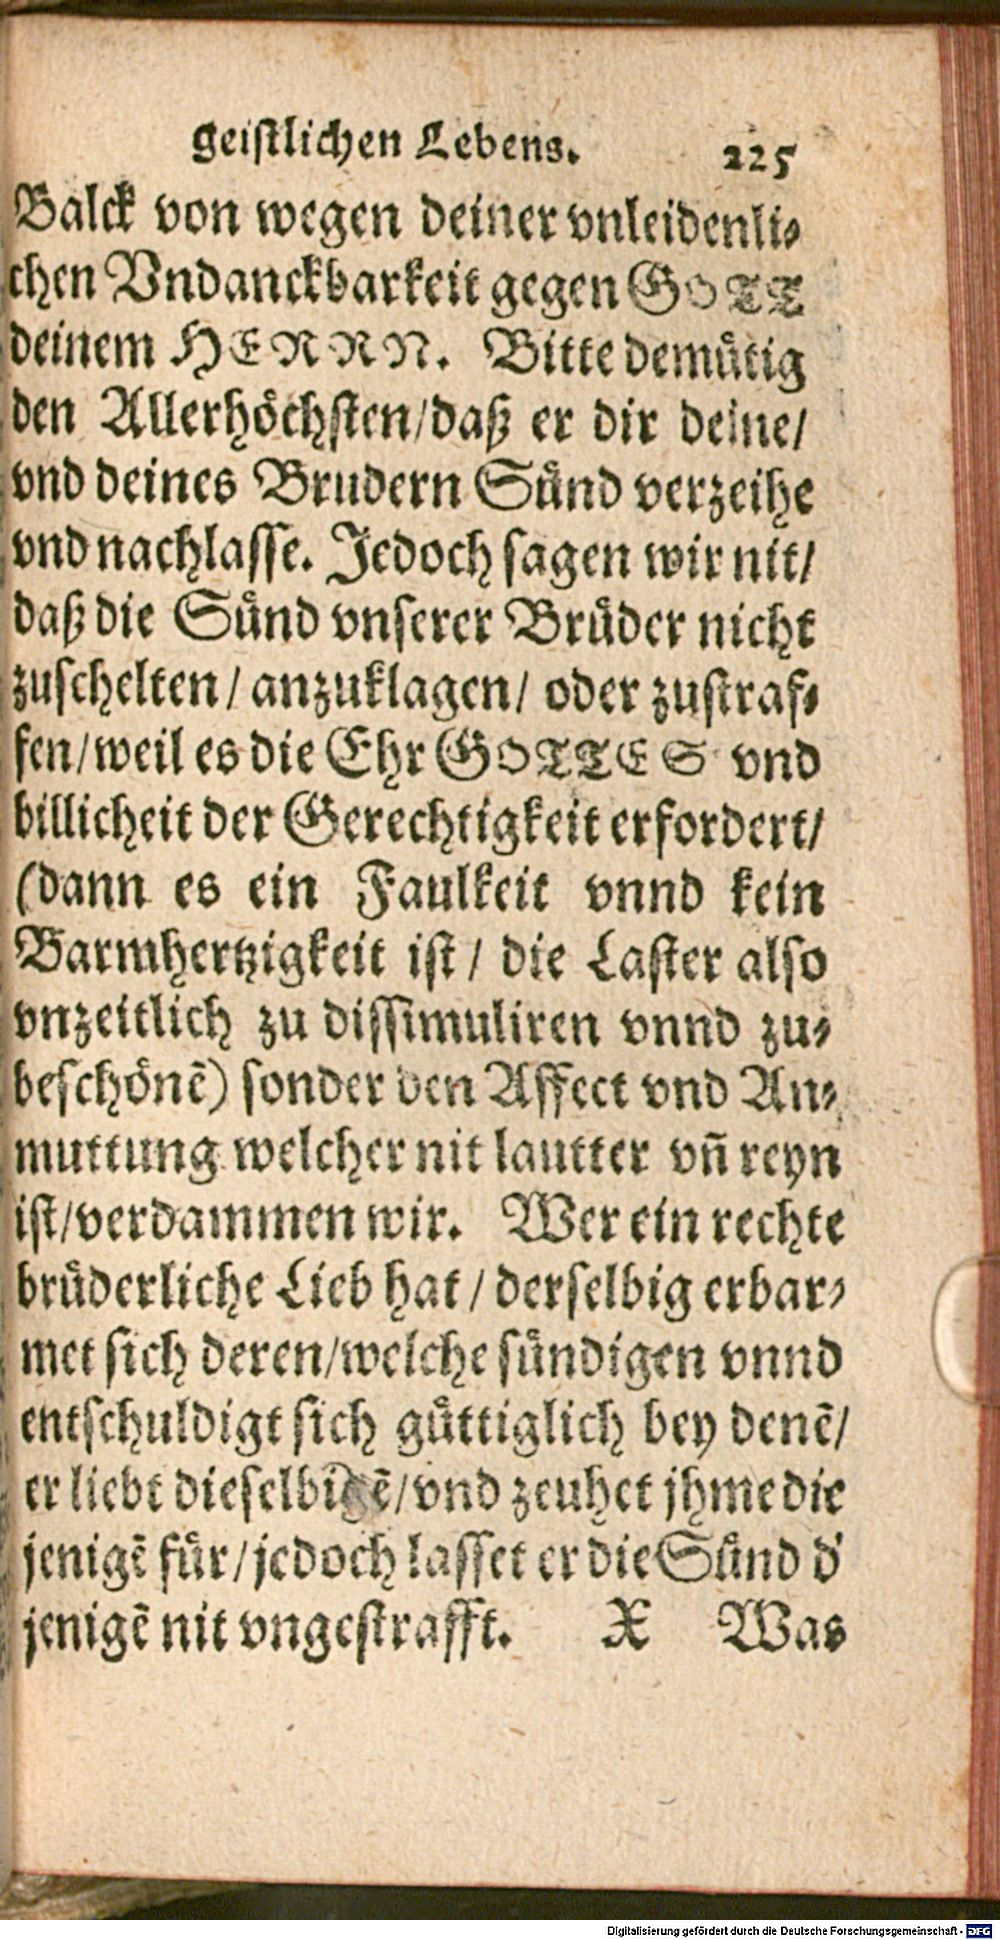 geistlichen Lebens. 225
Balck von wegen deiner vnleidenli-
chen Vndanckbarkeit gegen GOTT
deinem HERRN. Bitte demuͤtig
den Allerhoͤchsten/daß er dir deine/
vnd deines Brudern Suͤnd verzeihe
vnd nachlasse. Jedoch sagen wir nit/
daß die Suͤnd vnserer Bruͤder nicht
zuschelten/ anzuklagen/ oder zustraf-
fen/weil es die Ehr GOTTES vnd
billicheit der Gerechtigkeit erfordert/
(dann es ein Faulkeit vnnd kein
Barmhertzigkeit ist/ die Laster also
vnzeitlich zu dissimuliren vnnd zu-
beschoͤnẽ) sonder den Affect vnd An-
muttung welcher nit lautter vñ reyn
ist/verdammen wir. Wer ein rechte
bruͤderliche Lieb hat/ derselbig erbar-
met sich deren/welche suͤndigen vnnd
entschuldigt sich guͤttiglich bey denẽ/
er liebt dieselbigẽ/vnd zeuhet jhme die
jenigẽ fuͤr/jedoch lasset er die Suͤnd d'
jenigẽ nit vngestrafft. X Was
Digitalisierung gefördert durch die Deutsche Forschungsgemeinschaft - DFG